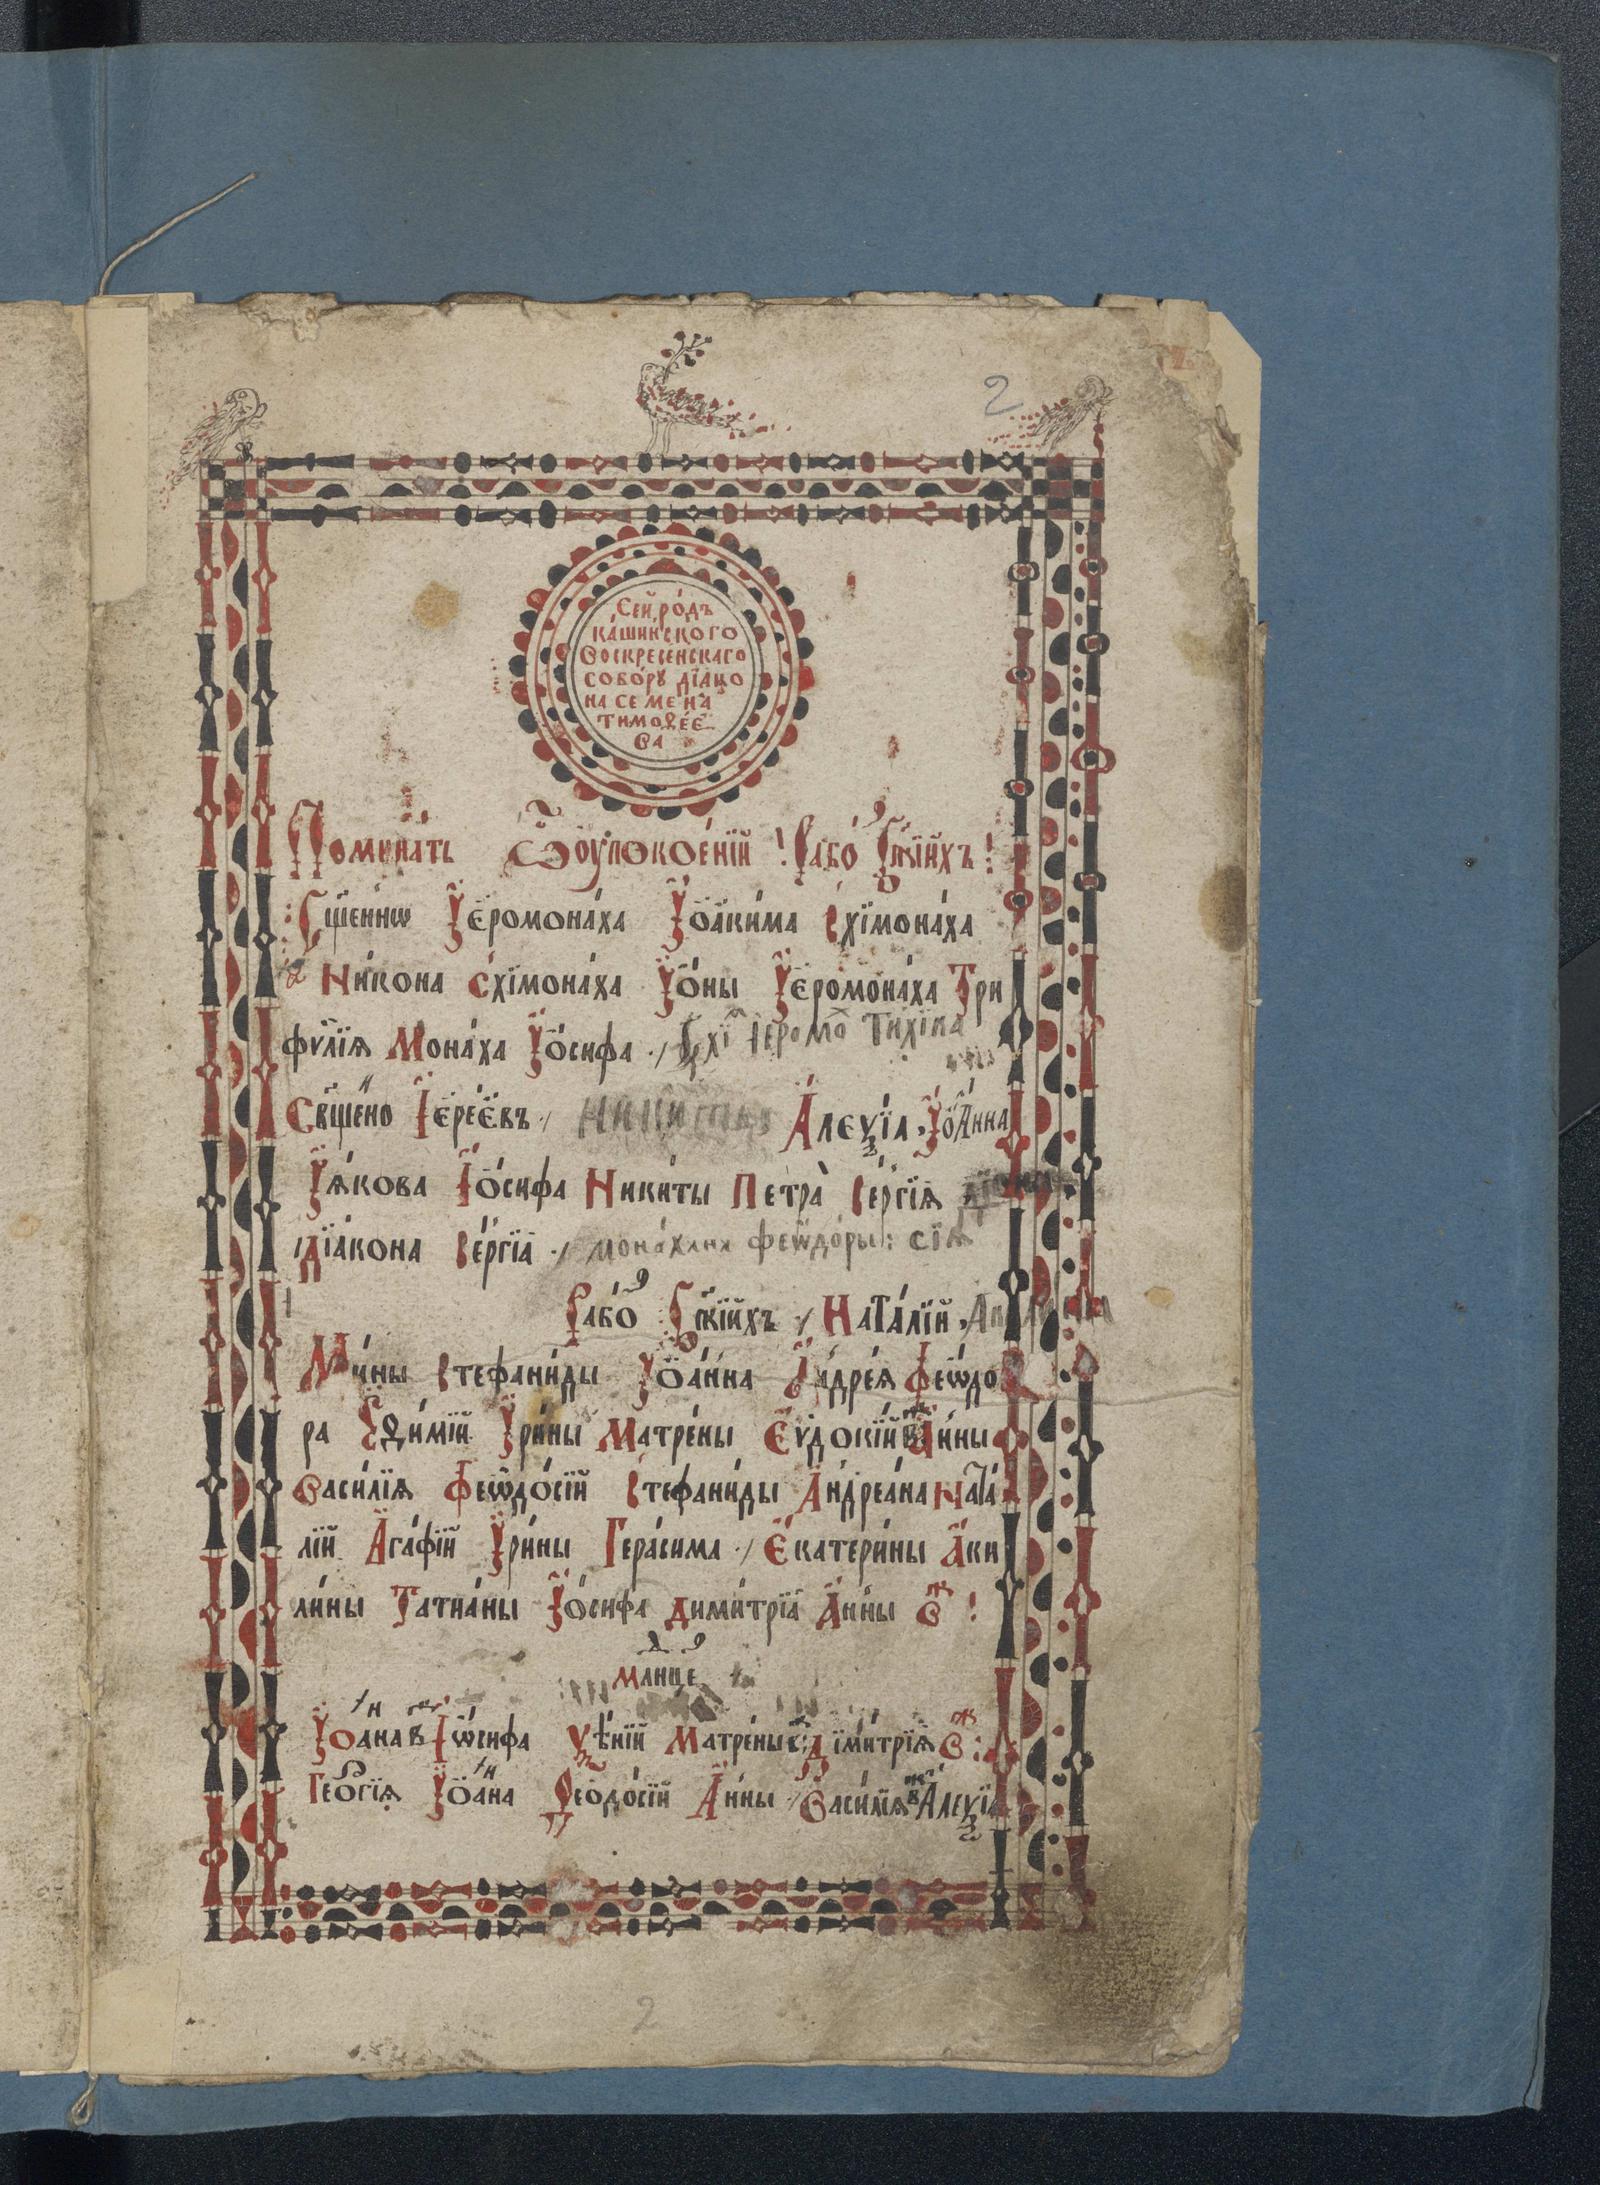 2
Сей ро́дъ
ка́шинского
Воскресенскаго
собо́ру діако
на семена
тимоѳе́е
ва
Помина́ть Ѿ оупокое́нїй ! Рабо́в бж҃їйхъ !
Сщ҃е́нно Іеромона́ха Іоаки́ма Схїмона́ха
Ни́кона Схїмона́ха Іо́ны Іеромона́ха Три
фѵ́лїя Мона́ха Іо́сифа ./ Схї Іеромо Ти́хїка
Свщ҃е́но Іере́евъ ./ Алеѯі́а , Іѡа́нна
Іа́кова Іо́сифа Ники́ты Петра̀ Се́ргїя
дїа́кона Се́ргїа ./ мона́хини феѡдо́ры : сїя
Рабо́в бж҃їйхъ / Ната́лїй ,
Ми́ны Стефани́ды Іоа́нна Андре́я Феѡ́до
ра Еѳи́мїй Ири́ны Матре́ны Еѵдокі́й в А́нны
Васи́лїя Феѡдо́сїй Стефани́ды Андреа́на Ната́
лїй Ага́фїй Ири́ны Гера́сима ./ Екатери́ны Аки
ли́ны Татиа́ны Іо́сифа Дими́трїа А́нны в !
Іоана в Іѡ́сифа Матре́ны Дїми́трїя в :
Гео́ргїя Іоа́на Феодо́сїй А́нны / Васи́лїя в Алеѯі́а
2